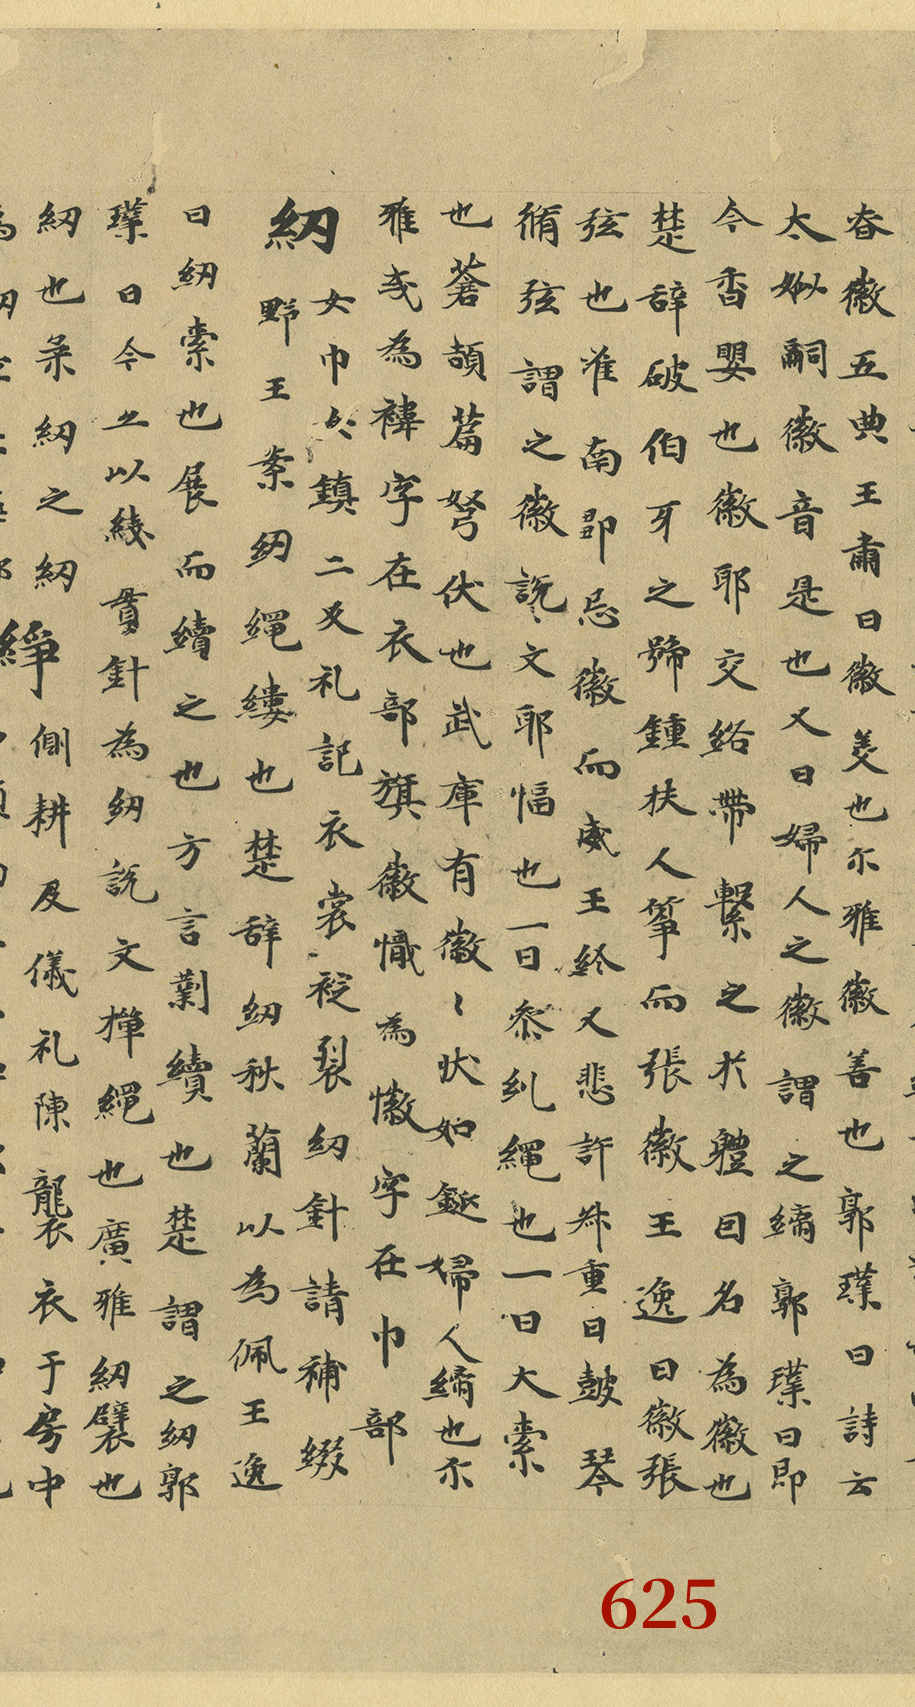 昚徽五典王肅曰徽美也尓雅徽善也郭璞曰詩云
太姒嗣徽音是也又曰婦人之徽謂之縭郭璞曰即
今香嬰也徽耶交絡帶繫之於體因名為徽也
楚辞破伯牙之號鍾扶人筝而張徽王逸曰徽張
弦也淮南邹忌徽而威王終又悲許叔重曰皷琴
脩弦謂之徽說文耶幅也一曰叅糺繩也一曰大索
也蒼頡篇弩伏也武庫有徽〻状如鋋婦人縭也尓
雅或為褘字在衣部旗徽幟為㡡字在巾部
紉
女巾女鎮二反礼記衣裳袉裂紉針請補綴
野王案紉繩縷也楚辞紉秋蘭以為佩王逸
曰紉索也展而續之也方言㔍續也楚謂之紉郭
璞曰今亦以綫貫針為紉說文撣繩也廣雅紉襞也
紉也柔紉之紉
綪側耕反儀礼陳襲衣于房中
625